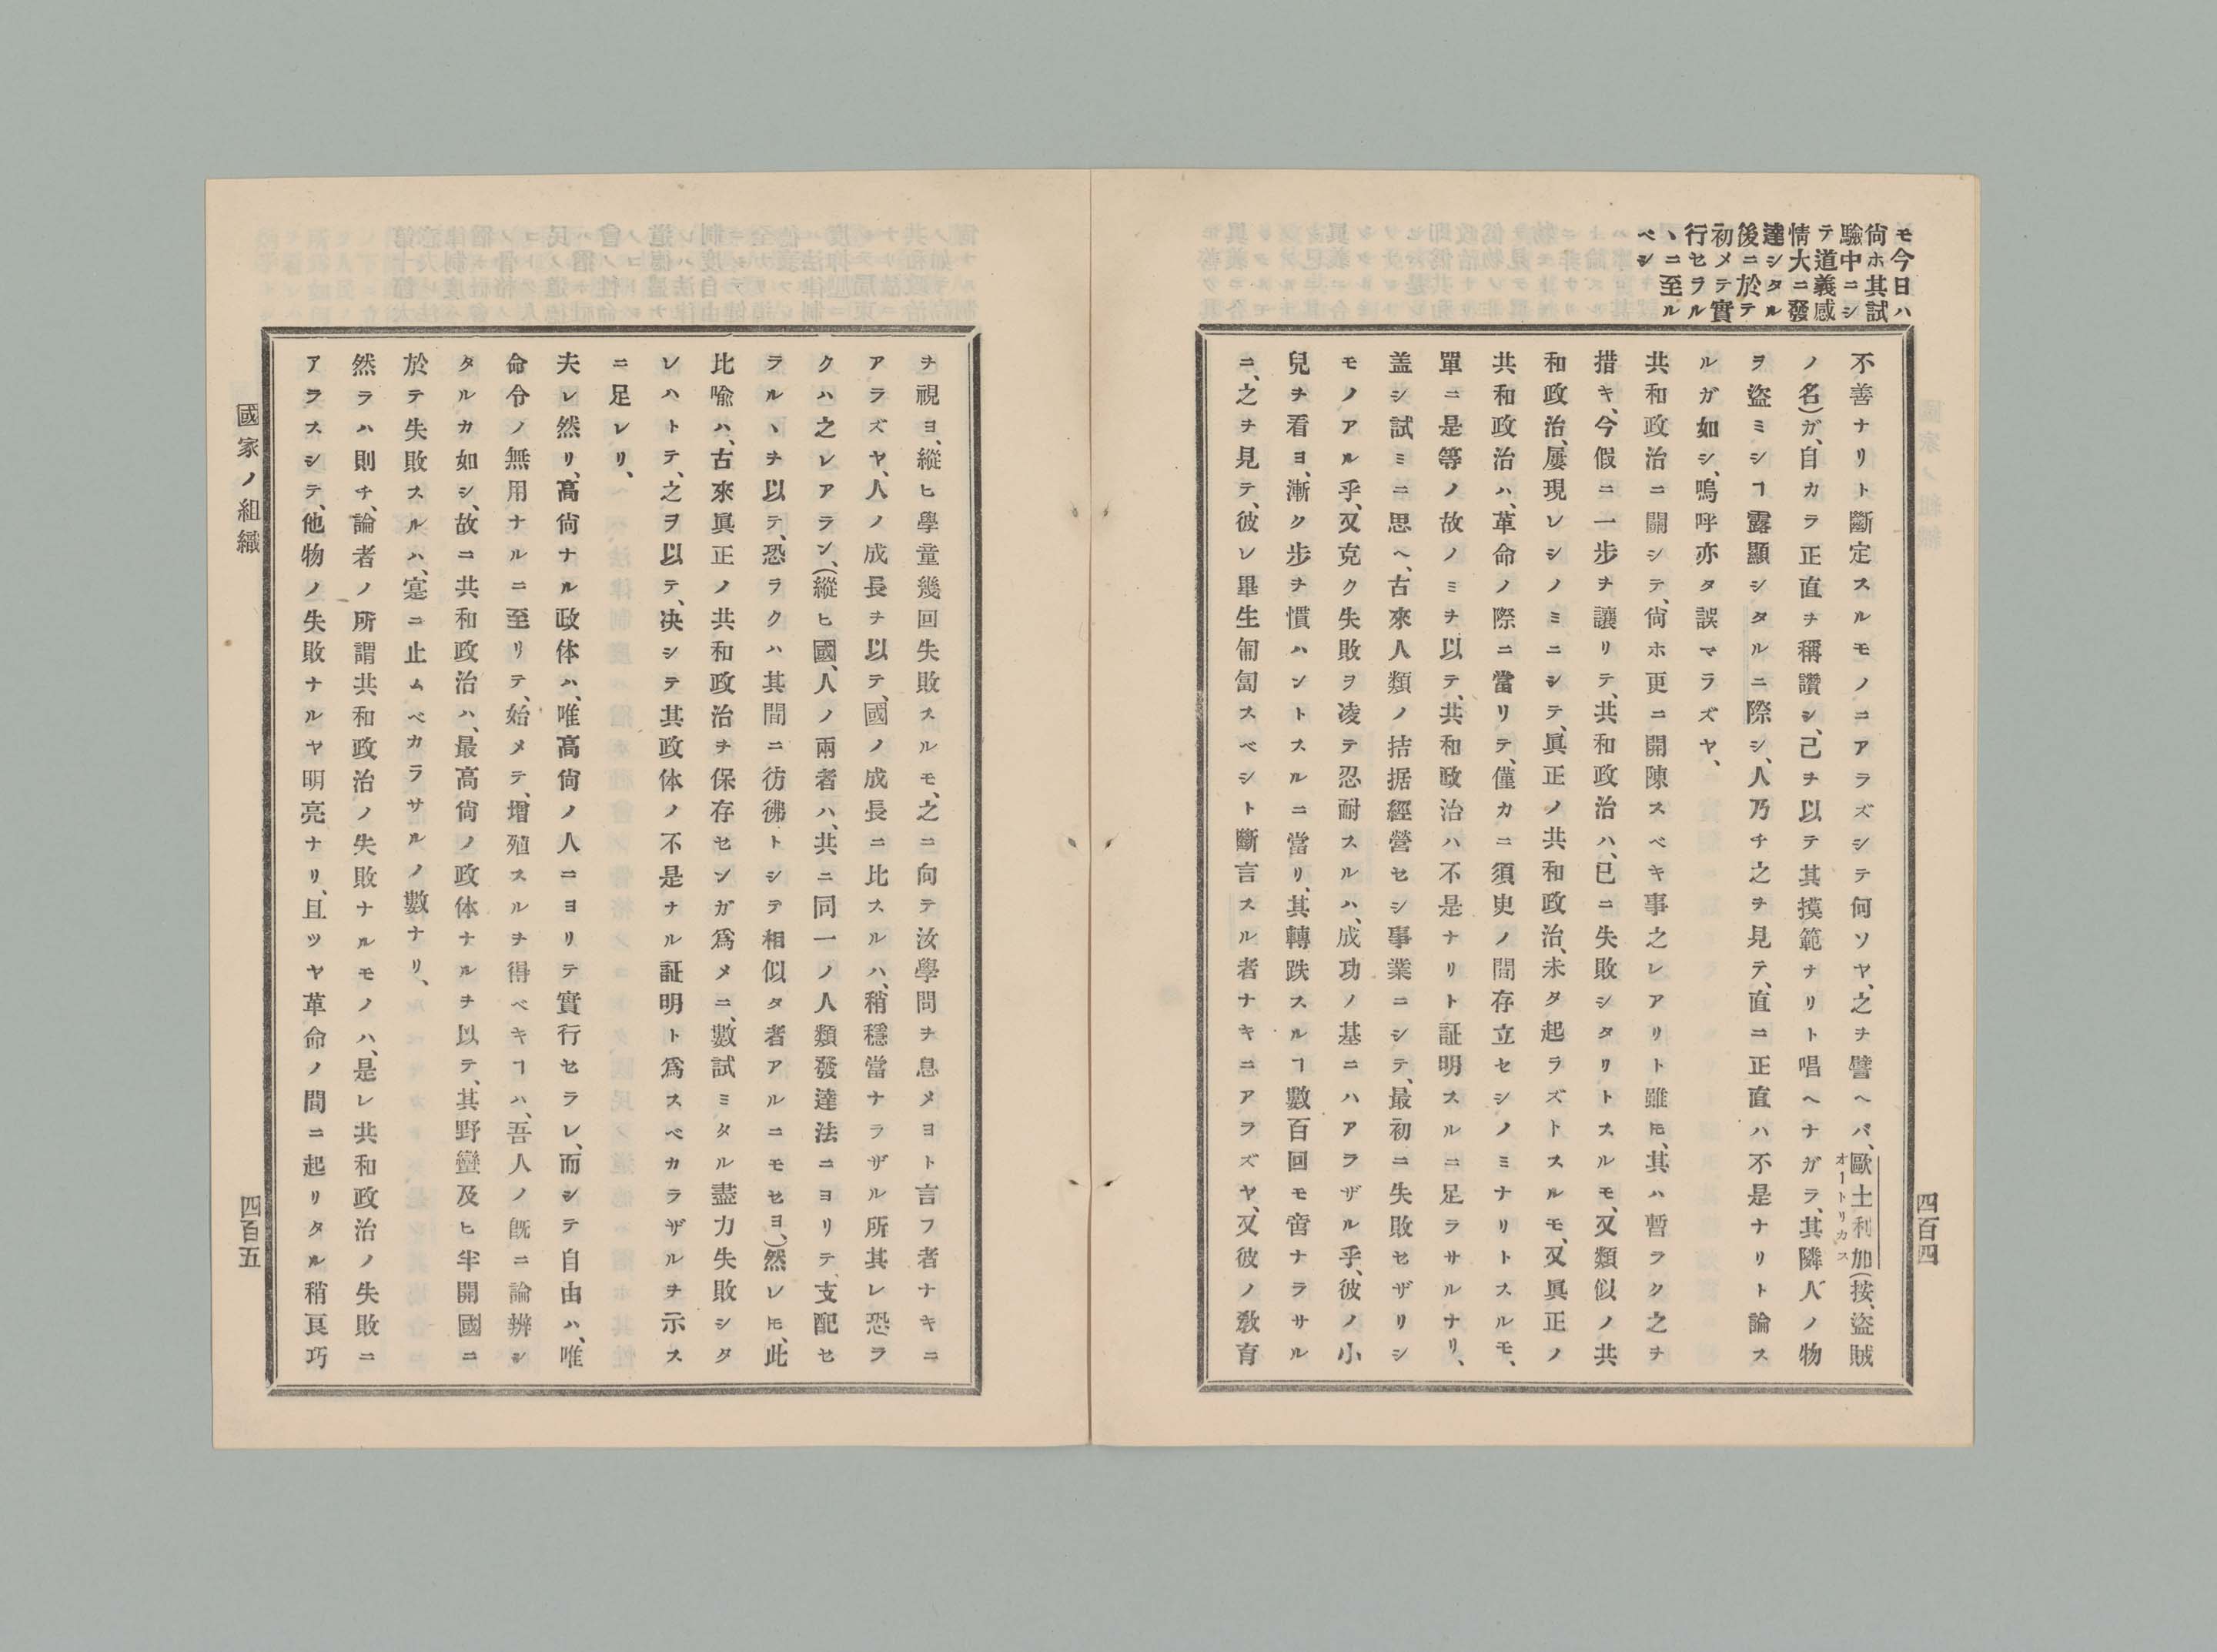 モ今日ハ
尙ホ其試
驗中ニシ
テ道義感
情大ニ發
達シタル
後ニ於テ
初メテ實
行セラル
ヽニ至ル
ベシ
四百四
不善ナリト斷定スルモノニアラズシテ何ソヤ、之ヲ譬ヘバ、歐土利加(按、盜賊
オートリカス
ノ名)ガ、自カラ正直ヲ稱讚シ、己ヲ以テ其摸範ナリト唱ヘナガラ、其隣人ノ物
ヲ盜ミシヿ露顯シタルニ際シ、人乃チ之ヲ見テ、直ニ正直ハ不是ナリト論ス
ルガ如シ、嗚呼亦タ誤マラズヤ、
共和政治ニ關シテ、尙ホ更ニ開陳スベキ事之レアリト雖𪜈、其ハ暫ラク之ヲ
措キ、今假ニ一步ヲ讓リテ、共和政治ハ、已ニ失敗シタリトスルモ、又類似ノ共
和政治、屢現レシノミニシテ、眞正ノ共和政治、未タ起ラズトスルモ、又眞正ノ
共和政治ハ、革命ノ際ニ當リテ、僅カニ須臾ノ間存立セシノミナリトスルモ、
單ニ是等ノ故ノミヲ以テ、共和政治ハ不是ナリト証明スルニ足ラサルナリ、
盖シ試ミニ思ヘ、古來人類ノ拮据經營セシ事業ニシテ、最初ニ失敗セザリシ
モノアル乎、又克ク失敗ヲ凌テ忍耐スルハ、成功ノ基ニハアラザル乎、彼ノ小
兒ヲ看ヨ、漸ク步ヲ慣ハントスルニ當リ、其轉跌スルヿ數百回モ啻ナラサル
ニ、之ヲ見テ、彼レ畢生匍匐スベシト斷言スル者ナキニアラズヤ、又彼ノ敎育
ヲ視ヨ、縱ヒ學童幾回失敗スルモ、之ニ向テ汝學問ヲ息メヨト言フ者ナキニ
アラズヤ、人ノ成長ヲ以テ、國ノ成長ニ比スルハ、稍穩當ナラザル所其レ恐ラ
クハ之レアラン、(縱ヒ國、人ノ兩者ハ、共ニ同一ノ人類發達法ニヨリテ、支配セ
ラルヽヲ以テ、恐ラクハ其間ニ彷彿トシテ相似タ者アルニモセヨ、)然レ𪜈、此
比喩ハ、古來眞正ノ共和政治ヲ保存センガ爲メニ、數試ミタル盡力失敗シタ
レハトテ、之ヲ以テ、决シテ其政体ノ不是ナル証明ト爲スベカラザルヲ示ス
ニ足レリ、
夫レ然リ、高尙ナル政体ハ、唯高尙ノ人ニヨリテ實行セラレ、而シテ自由ハ、唯
命令ノ無用ナルニ至リテ、始メテ、增殖スルヲ得ベキヿハ、吾人ノ旣ニ論辨シ
タルカ如シ、故ニ共和政治ハ、最高尙ノ政体ナルヲ以テ、其野蠻及ヒ半開國ニ
於テ失敗スルハ、寔ニ止ムベカラサルノ數ナリ、
然ラハ則チ、論者ノ所謂共和政治ノ失敗ナルモノハ、是レ共和政治ノ失敗ニ
アラスシテ、他物ノ失敗ナルヤ明亮ナリ、且ツヤ革命ノ間ニ起リタル稍良巧
國家ノ組織
四百五